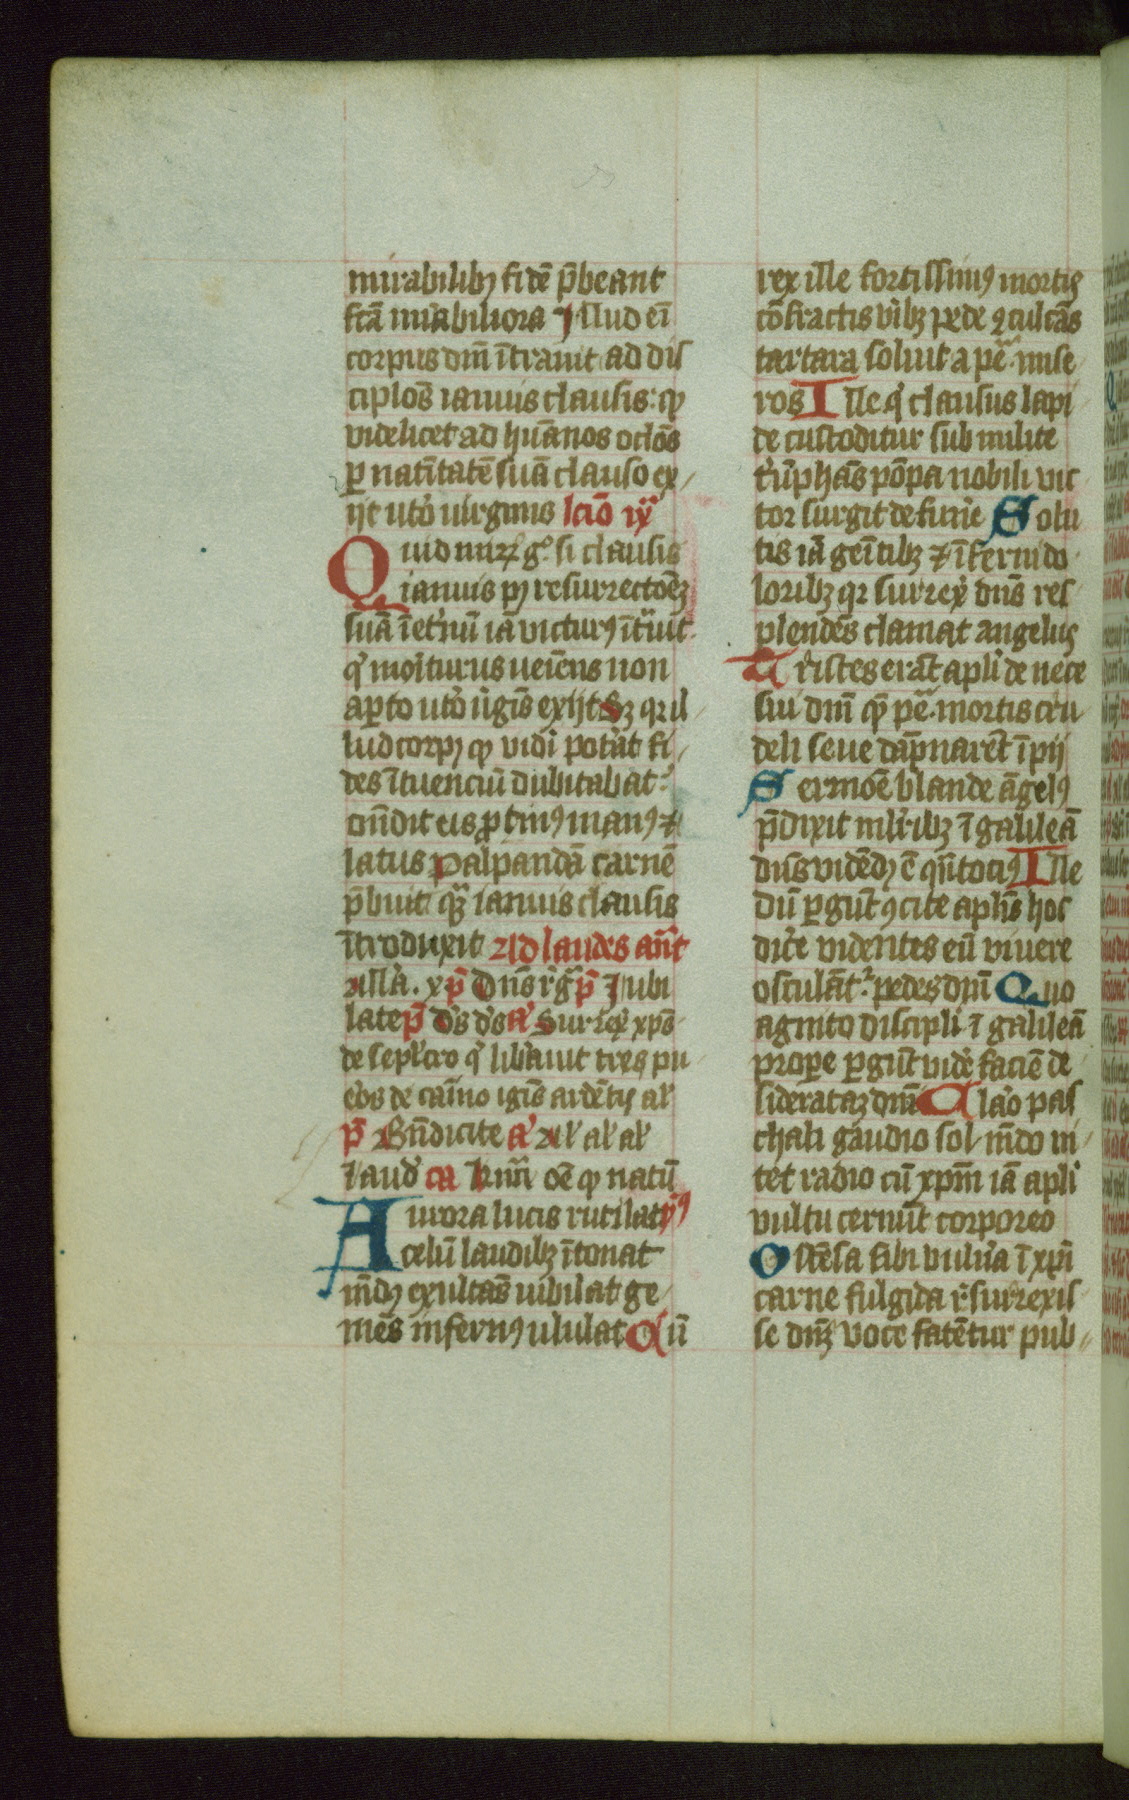 mirabilibꝫ fidē p̄beant
fc̄a mirabiliora Illud eī
corpus dn̄i ītrauit ad dis
ciplos ianuis clausis: qḋ
videlicet ad hūanos oclōs
ꝑ natītatē suā clauso ex
ijt uto̕ uirginis lcīo ix͛
Quid mirꝝ gͦ si clausis
ianuis pꝰ resurrectōēꝫ
suā ī et̕nū iā victurꝰ īt͛uit
qͥ moriturus ueiēns non
aꝑto uto̕ ūgīs exijt Sꝫ qr il
lud corpꝰ qḋ vidi̕ pot̕at fi
des ītuenciū dubitabat:
on̄dit eis ꝓtinꝰ manꝰ ⁊
latus palpandā carnē
p̄buit qͣꝫ ianuis clausis
ītroduxit Ad laudes an̄t
Allā. xp̄ Dn̄s rͥgͣ p̄ Jubi
late p̄ dˀs dˀs aͣ Surrex̕ xp̄s
de sepl̕cro qͥ lib̕auit tres pu
eros de camīo ignīs ardētꝭ al̕
p̄ Bn̄dicite aͣ Al̕ al̕ al̕
laud̕ ca hmn̄ oē qḋ natū
Aurora lucis rutilat ymꝰ
celū laudibꝫ ītonat
mn̄dꝰ exultās iubilat ge
mēs infernꝰ ululat Cū
rex ille fortissimꝰ mortis
cōfractis virıbꝫ pede ꝯculcās
tartara soluit a peͣ. mise
ros Ille qͥ clausus lapi
de custoditur sub milite
tͥūphās pōpa nobili vic
tor surgit de fune̕ Solu
tis iā gemītibꝫ ⁊ īferni do
loribꝫ qr surrex̕ dn̄s res
plendēs clamat angelus
Tristes erāt apli̕ de nece
sui dn̄i qͣ peͣ. mortis cru
deli seue dāpnarēt īpij
Sermōe blande āgelꝰ
p̄dixit mlr̄ibꝫ ī galileā
dn̄s vidēdꝰ ē qn̄tociꝰ Ille
dū ꝑgūt ꝯcite aplīs hoc
dice̕ videntes eū viuere
osculāt͛ pedes dn̄i Quo
agnito discipli̕ ī galileā
prope ꝑgūt vide̕ faciē de
siderataꝫ dn̄i Claro pas
chali gaudio sol mn̄do ni
tet radio cū xp̄m iā apli̕
vultu cernūt corporeo
Ostēsa sibi vuln̕a ī xp̄i
carne fulgida r̕surrexis
se dn̄ꝫ voce fatētur pub